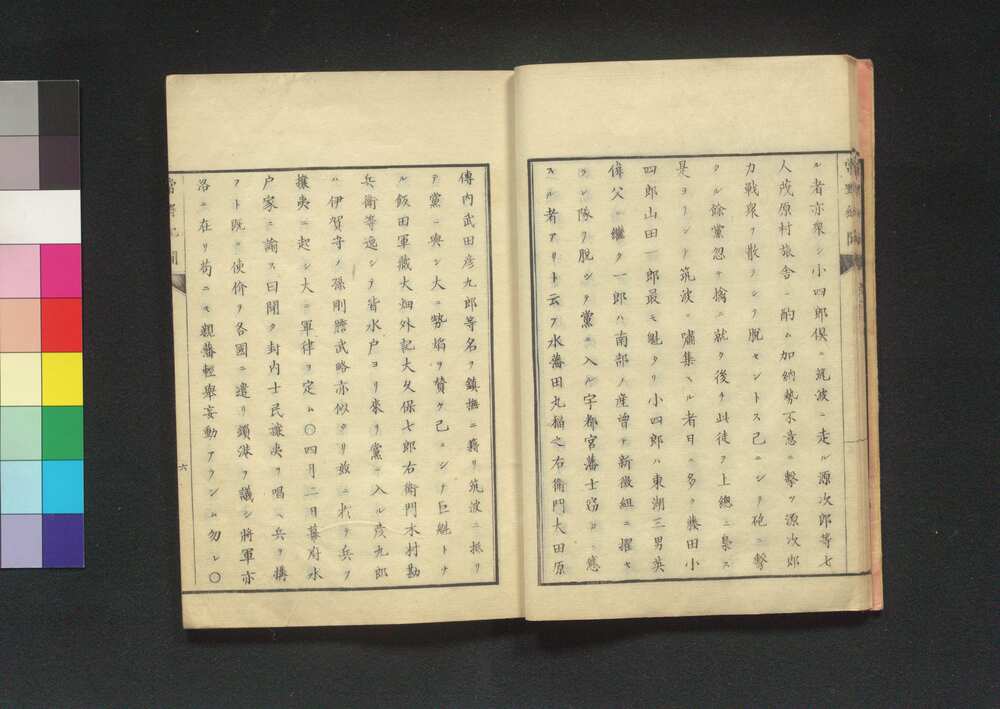 ル者亦衆シ小四郎俣ニ筑波ニ走ル源次郎等七
人茂原村旅舎ニ酌ム加納勢不意ニ撃ツ源次郎
力戦衆ヲ散ラシヲ脱セントス已ニシヲ砲ニ撃
タル餘黨忽チ擒ニ就ク後チ此徒ヲ上總ニ梟ス
是ヨリシテ筑波ニ嘯集スル者日ニ多ク藤田小
四郎山田一郎最モ魁タリ小四郎ハ東湖三男英
偉父ニ繼ク一郎ハ南部ノ産曽テ新徴組ニ擢セ
ラレ隊ヲ脱シテ黨ニ入ル宇都宮藩士
スル者アリト云フ水藩田丸稲之右衛門大田原
傳内武田彦九郎等名ヲ鎮撫ニ藉リ筑波ニ抵リ
テ黨ニ與シ大ニ勢焰ヲ賛ク已ニシテ巨魁トナ
ル飯田軍藏大畑外記大久保七郎右衛門木村勘
兵衛等逸シテ皆水户ヨリ來リ黨ニ入ル彦九郎
ハ伊賀守ノ孫剛膽武略亦似タリ玆ニ於テ兵ヲ
攘夷ニ起シ大ニ軍律ヲ定ム〇四月二日幕府水
户家ニ諭ス曰聞ク封内士民攘夷ヲ唱ヘ兵ヲ構
フト既ニ使价ヲ各國ニ遣リ鎖港ヲ議シ將軍亦
洛ニ在リ苟ニモ親藩輕擧妄動アラシム勿レ〇
六